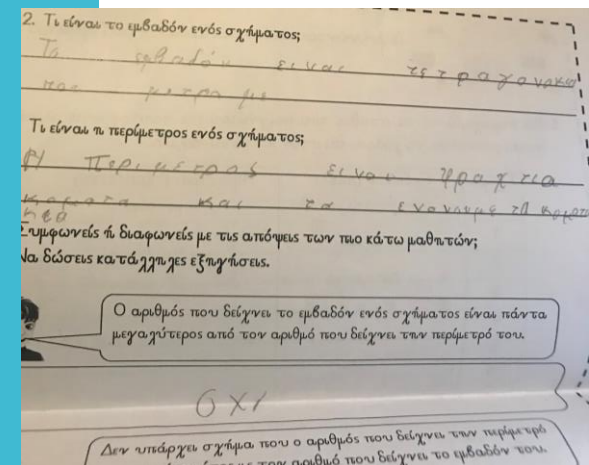 2. Τι είναι το εμβαδόν ενός σχήματος;
Το εμβαδόν ειναι τετραγωνακια
που μετραμε
Τι είναι η περίμετρος ενός σχήματος;
Η Περιμετρος ειναι φραχτια
και τα ενονουμε τα
Συμφωνείς ή διαφωνείς με τις απόψεις των πιο κάτω μαθητών;
Να δώσεις κατάλληλες εξηγήσεις.
Ο αριθμός που δείχνει το εμβαδόν ενός σχήματος είναι πάντα
μεγαλύτερος από τον αριθμό που δείχνει την περίμετρό του.
Οχι
Δεν υπάρχει σχήμα που ο αριθμός που δείχνει την περίμετρό
με τον αριθμό που δείχνει το εμβαδόν του.